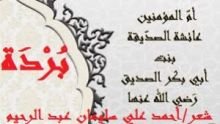 أمّ المؤمنين
عائشة الصدّيقة
بنت
أبي بكر الصديق
رَضي اللهُ عَنها
بُرْدَة
شعر/أحمد علي سليمان عبد الرحيم